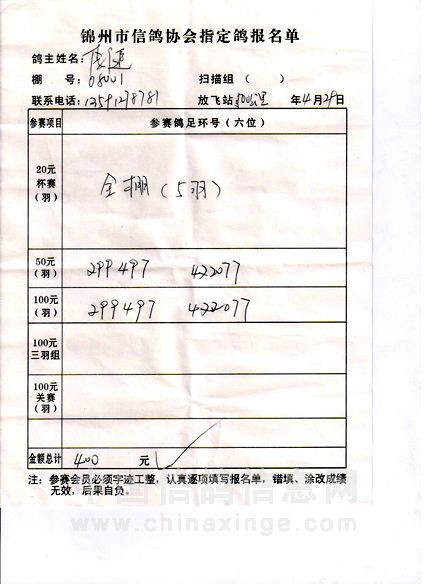 锦州市信鸽协会指定鸽报名单
鸽主姓名:
棚 号: 08001
扫描组 ( )
联系电话: 13591278781 放飞站 500公里 年4月29日
参赛项目 参赛鸽足环号(六位)
20元
杯赛
(羽)
全棚(5羽)
50元
(羽)
299497 422077
100元
(羽)
299497 422077
100元
三羽组
100元
关赛
(羽)
金额总计 400 元
注: 参赛会员必须字迹工整,认真逐项填写报名单,错填、涂改成绩
无效,后果自负。
中国信鸽信息网
www.chinaxinge.com